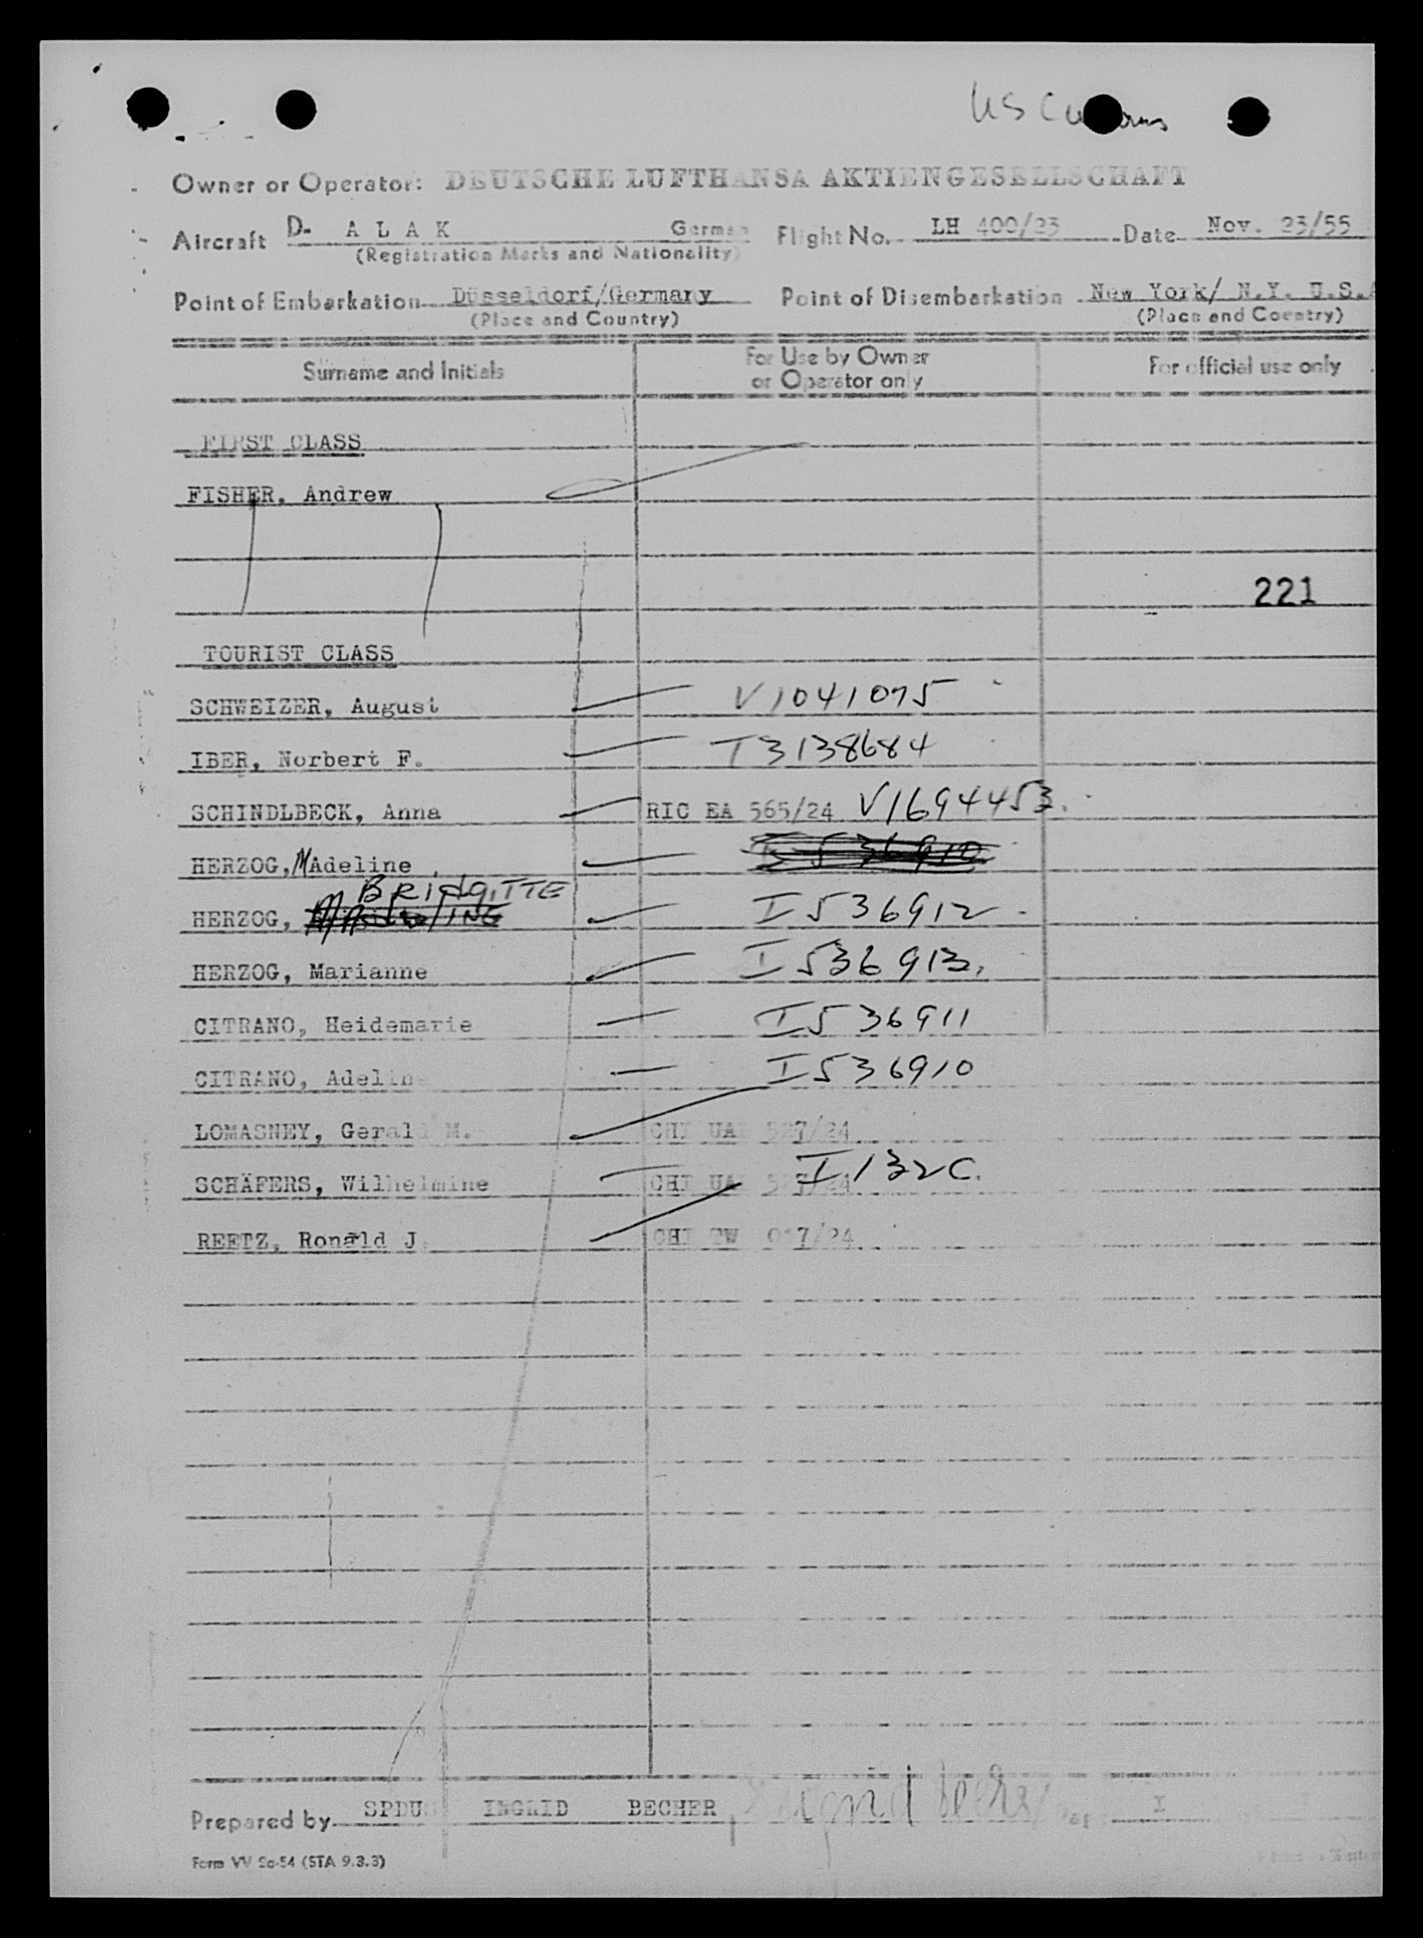 US Customs
Owner or Operator: DEUTSCHE LUFTHANSA AKTIENGESELLSCHAFT
Aircraft D- A L A K German Flight No. LH 400/23 Date Nov. 23/55
(Registration Marks and Nationality)
Point of Embarkation Düsseldorf/Germany Point of Disembarkation New York/ N.Y. U.S.A
(Place and Country) (Place and Country)
Surname and Initials For Use by Owner or Operator only For official use only
FIRST CLASS
FISHER, Andrew
221
TOURIST CLASS
SCHWEIZER, August V1041075
IBER, Norbert F. T3138684
SCHINDLBECK, Anna RIC EA 565/24 V1694453.
HERZOG, M Adeline I536910
BRIDGITTE
HERZOG, I536912
HERZOG, Marianne I536913.
CITRANO, Heidemarie I536911
CITRANO, Adeline I536910
LOMASNEY, Gerald M. CHI UA 24
SCHÄFERS, Wilhelmine CHI UA 24 I132C.
REETZ, Ronald J. CHI TW 24
Prepared by SPDUS INGRID BECHER I
Form VV 2c-54 (STA 9.3.3)